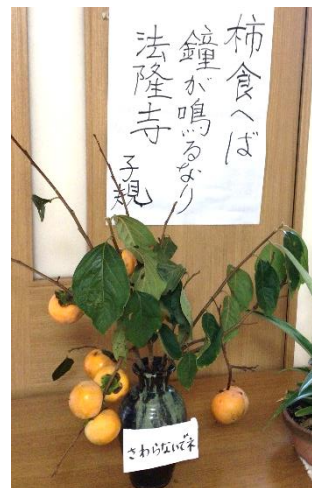 柿食へば
鐘が鳴るなり
法隆寺
子規
さわらないでネ